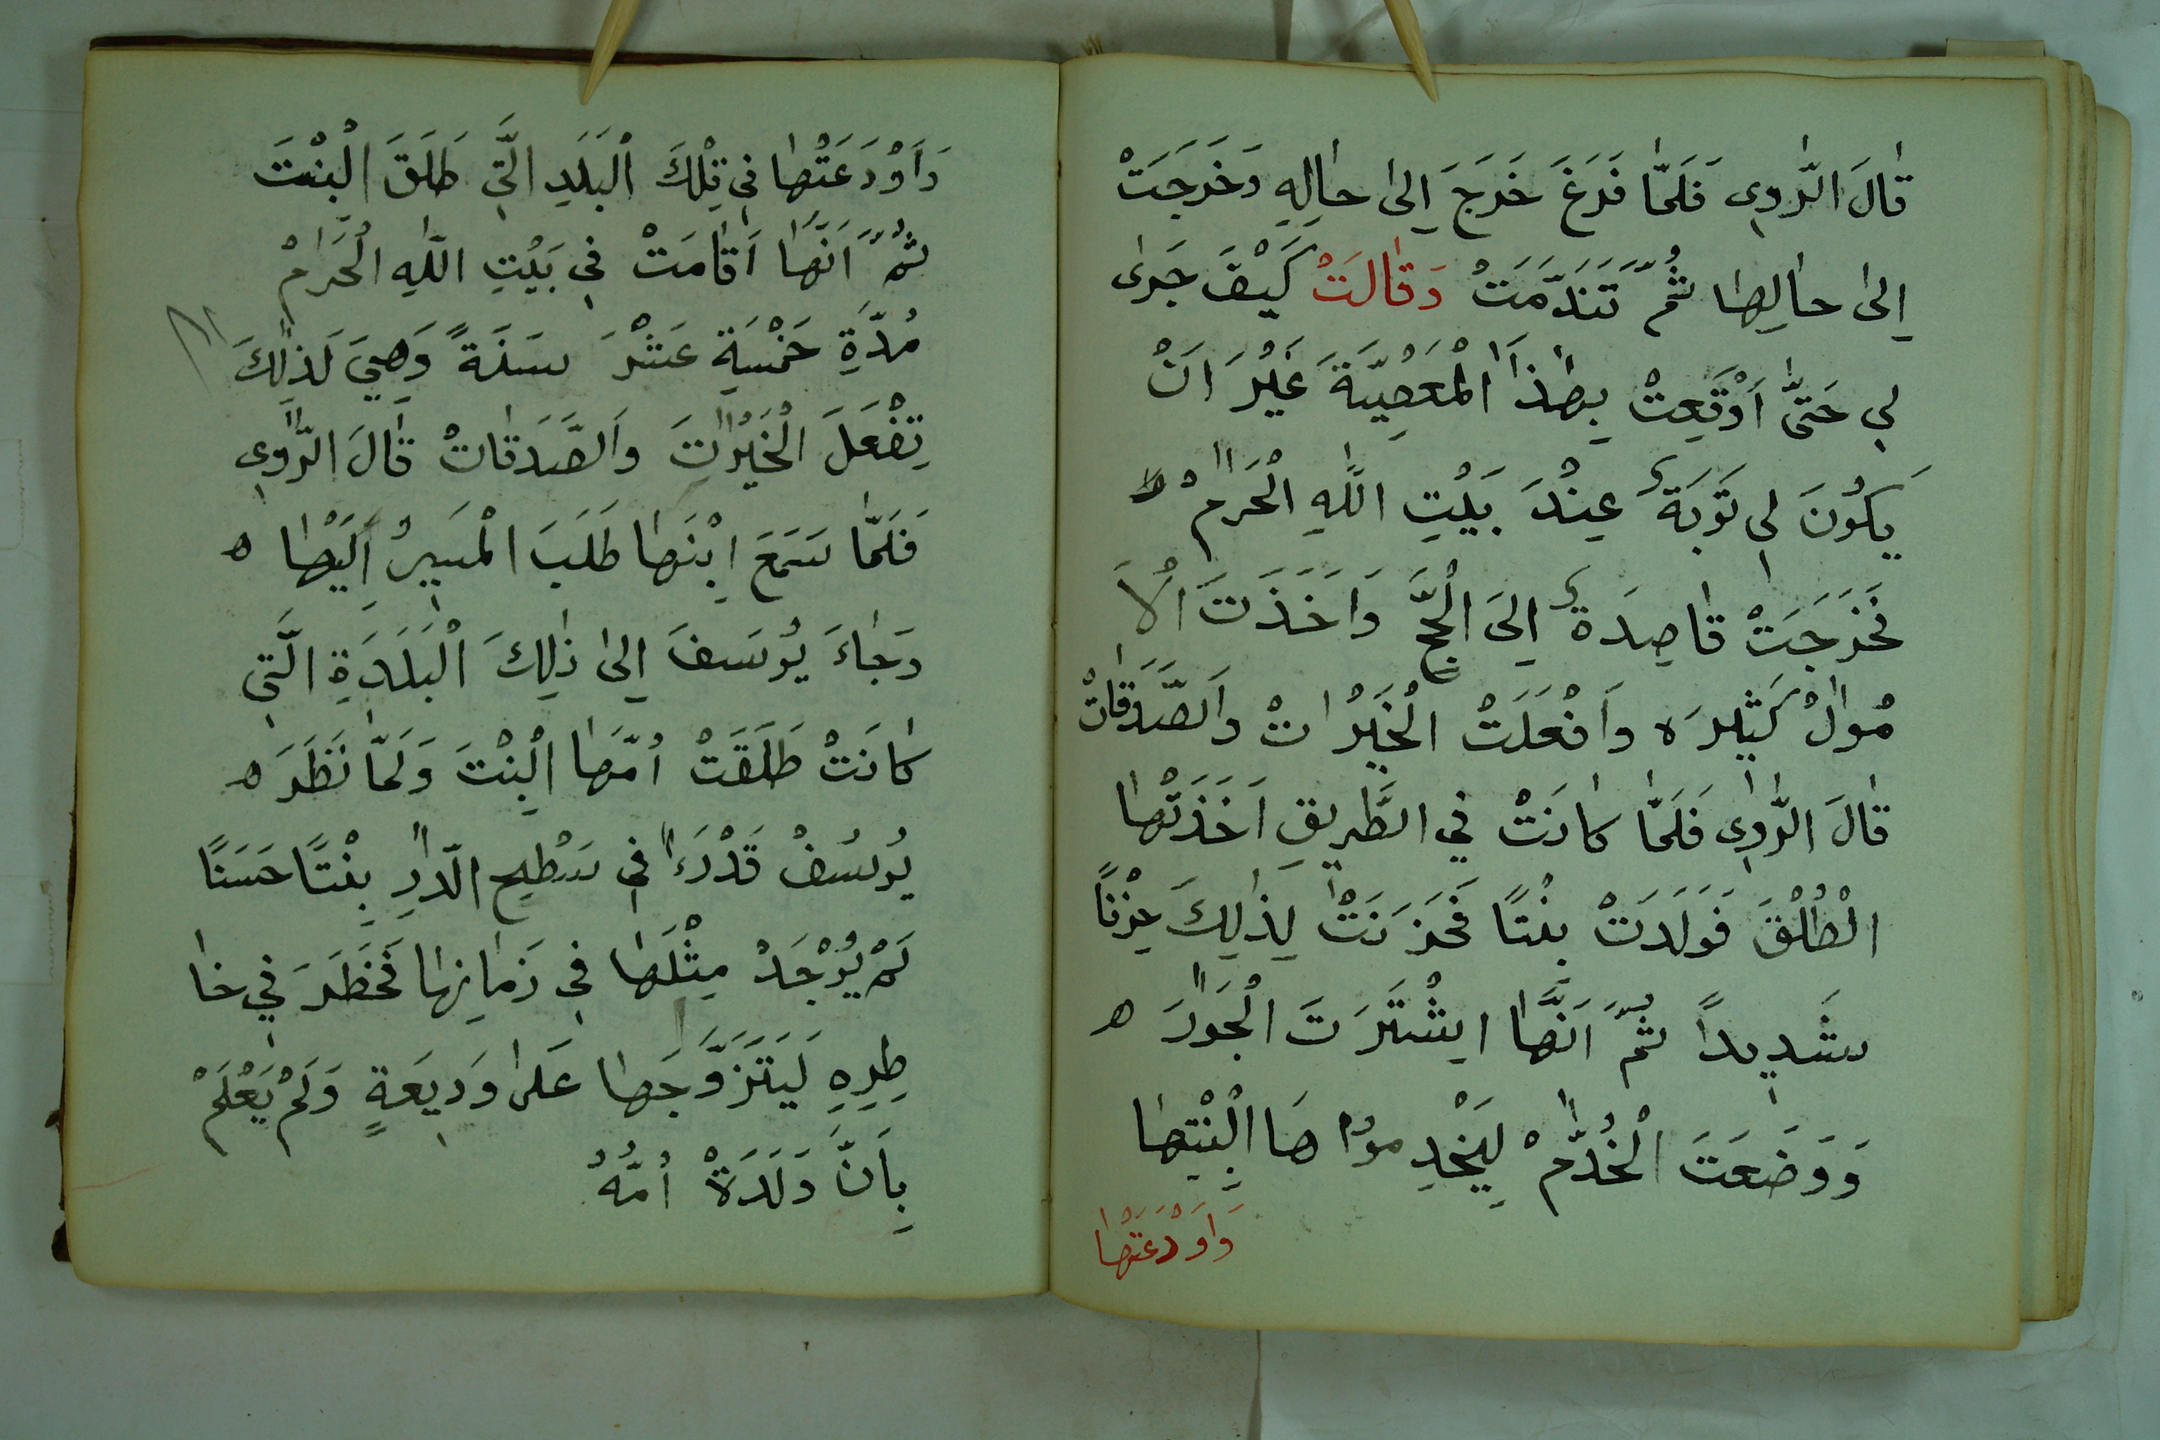 قٰالَ الرّٰوِي فَلَمّٰا فَرَغَ خَرَجَ اِلىٰ حٰالِهِ وَخَرَجَتْ
اِلىٰ حٰالِهٰا ثُمَّ تَنَدَّمَتْ وَقٰالَتْ كَيْفَ جَرٰى
لِي حَتّٰى اَوْقَعِتْ بِهٰذَا الْمَعْصِيَّةَ غَيْرَ اَنْ
يَكُونَ لِي تَوْبَةً عِنْدَ بَيْتِ اللّٰهِ الْحَرٰامْ ه
فَخَرَجَتْ قٰاصِدَةً اِلىَ الْحَجِّ وَاَخَذَتَ الْاَ
مْوٰالْ كَثٖيرَه وَاَفْعَلَتْ الْخَيْرٰاتْ وَالصَّدَقٰاتْ
قٰالَ الرّٰوِي فَلَمّٰا كٰانَتْ فِي الطَّرٖيقِ اَخَذَتْهٰا
الْطُلْقَ فَوَلَدَتْ بِنْتًا فَحَزَنَتْ لِذٰلِكَ حِزْنًا
شَدٖيدًا ثُمَّ اَنَّهٰا اِيشْتَرَتَ الْجَوٰارَ ه
وَوَضَعَتَ الْخُدّٰمْ لِيَخْدِموُا هَا الْبِنْتِهٰا
وَاَوْدَعَتْهٰا
وَاَوْدَعَتْهٰا فِي تِلْكَ الْبَلَدِ الَّتِي طَلَقَ الْبِنْتَ
ثُمَّ اَنَّهٰا اَقٰامَتْ فِي بَيْتِ اللّٰهِ الْحَرٰامْ
مُدَّةِ خَمْسَةِ عَشْرَ سَنَةً وَهِيَ لَذٰلِكَ
تِفْعَلَ الْخَيْرٰاتَ وَالصَّدَقٰاتْ قٰالَ الرّٰوِي
فَلَمّٰا سَمَعَ اِبْنَهٰا طَلَبَ الْمَسٖيرُ اِلَيْهٰا ه
وَجٰاءَ يُوسَفَ اِلىٰ ذٰلِكَ الْبَلَدَةِ الَّتِي
كٰانَتْ طَلَقَتْ اُمَّهٰا الْبِنْتَ وَلَمّٰا نَظَرَ ه
يُوسُفْ قَدْرَءٰا فِي سَطْحِ الدّٰارِ بِنْتًا حَسَنًا
لَمْ يُوْجَدْ مِثْلَهٰا فِي زَمٰانِهٰا فَخَطَرَ فِي خٰا
طِرِهِ لَيَتَزَوَّجَهٰا عَلىٰ وَدٖيعَةٍ وَلَمْ يَعْلَمْ
بِاَنَّ وَلَدَةْ اُمُّهُ